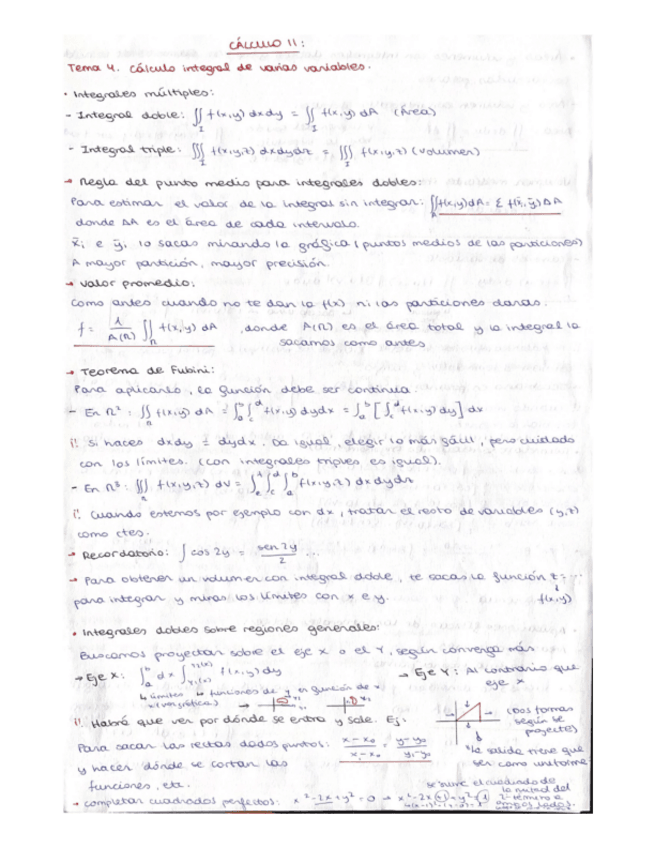 CÁLCULO II:
Tema 4. Cálculo integral de varias variables.
• Integrales múltiples:
- Integral doble: ∬_I f(x,y) dxdy = ∬_I f(x,y) dA (Área)
- Integral triple: ∭_I f(x,y,z) dxdydz = ∭_I f(x,y,z) (volumen)
→ Regla del punto medio para integrales dobles:
Para estimar el valor de la integral sin integrar: ∬_R f(x,y)dA = Σ f(x̄,ȳ) ΔA
donde ΔA es el área de cada intervalo.
x̄i e ȳi lo sacas mirando la gráfica (puntos medios de las particiones)
A mayor partición, mayor precisión.
→ Valor promedio:
Como antes cuando no te dan la f(x) ni las particiones dadas.
f = 1/A(R) ∬_R f(x,y) dA , donde A(R) es el área total y la integral la
sacamos como antes
→ Teorema de Fubini:
Para aplicarlo, la función debe ser continua.
- En R²: ∬_R f(x,y) dA = ∫_a^b ∫_c^d f(x,y) dydx = ∫_a^b [∫_c^d f(x,y) dy] dx
¡! Si haces dxdy = dydx. Da igual, elegir lo más fácil, pero cuidado
con los límites. (Con integrales triples es igual).
- En R³: ∭ f(x,y,z) dV = ∫_e^f ∫_c^d ∫_a^b f(x,y,z) dxdydz
¡! Cuando estemos por ejemplo con dx, tratar el resto de variables (y,z)
como ctes.
→ Recordatorio: ∫ cos 2y = sen 2y / 2 ...
→ Para obtener un volumen con integral doble, te sacas la función z=
para integrar y miras los límites con x e y. f(x,y)
• Integrales dobles sobre regiones generales:
Buscamos proyectar sobre el eje X o el Y, según converga más
→ Eje X: ∫_a^b dx ∫ f(x,y) dy → Eje Y: Al contrario que
eje x
límites funciones de y en función de x
x (ver gráfica)
¡! Habrá que ver por dónde se entra y sale. Ej: (Dos formas
según se
proyecte)
Para sacar las rectas dados puntos: x-x₀/x₁-x₀ = y-y₀/y₁-y₀
y hacer dónde se cortan las
funciones, etc.
*la salida tiene que
ser como uniforme
→ Completar cuadrados perfectos: x²-2x+y²=0 → x²-2x+1+y²=1
el cuadrado de
la mitad del
2º término a
ambos lados.